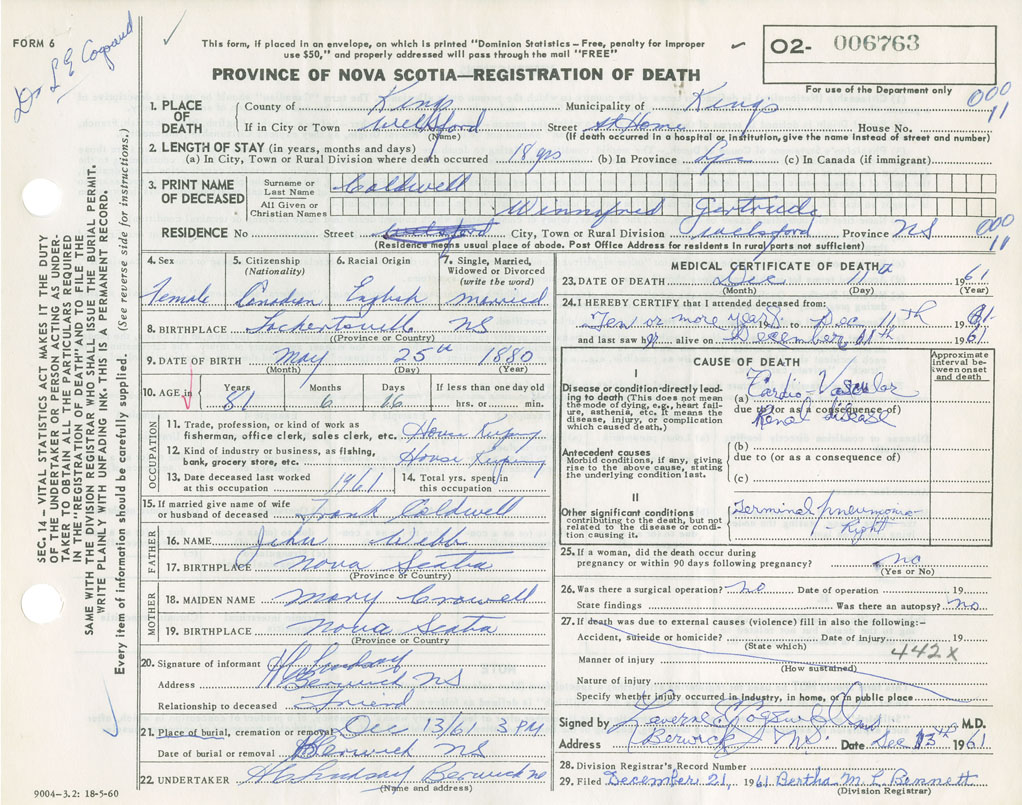 FORM 6
Dr L E Cogswell
This form, if placed in an envelope, on which is printed "Dominion Statistics – Free, penalty for improper
use $50," and properly addressed will pass through the mail "FREE"
02- 006763
For use of the Department only
PROVINCE OF NOVA SCOTIA—REGISTRATION OF DEATH
000
11
1. PLACE OF DEATH
County of Kings Municipality of Kings
If in City or Town Welsford Street at Home House No.
(Name) (If death occurred in a hospital or institution, give the name instead of street and number)
2. LENGTH OF STAY (in years, months and days)
(a) In City, Town or Rural Division where death occurred 18 yrs (b) In Province Life (c) In Canada (if immigrant)
3. PRINT NAME OF DECEASED
Surname or Last Name Coldwell
All Given or Christian Names Winnifred Gertrude
RESIDENCE No Street City, Town or Rural Division Welsford Province NS
000
11
(Residence means usual place of abode. Post Office Address for residents in rural parts not sufficient)
4. Sex Female
5. Citizenship (Nationality) Canadian
6. Racial Origin English
7. Single, Married, Widowed or Divorced (write the word) married
8. BIRTHPLACE Lockhartville NS
(Province or Country)
9. DATE OF BIRTH May 25th 1880
(Month) (Day) (Year)
10. AGE in Years 81 Months 6 Days 16 If less than one day old hrs. or min.
OCCUPATION
11. Trade, profession, or kind of work as
fisherman, office clerk, sales clerk, etc. House Keeping
12. Kind of industry or business, as fishing,
bank, grocery store, etc. House Keeping
13. Date deceased last worked at this occupation 1961
14. Total yrs. spent in this occupation
15. If married give name of wife
or husband of deceased Frank Coldwell
FATHER
16. NAME John Webb
17. BIRTHPLACE Nova Scotia
(Province or Country)
MOTHER
18. MAIDEN NAME Mary Crowell
19. BIRTHPLACE Nova Scotia
(Province or Country)
20. Signature of informant H C Lindsay
Address Berwick NS
Relationship to deceased Friend
21. Place of burial, cremation or removal Dec 13/61 3 PM
Date of burial or removal Berwick NS
22. UNDERTAKER H C Lindsay Berwick
(Name and address)
MEDICAL CERTIFICATE OF DEATH
23. DATE OF DEATH Dec 11th 1961
(Month) (Day) (Year)
24. I HEREBY CERTIFY that I attended deceased from:
Ten or more years 19 to Dec 11th 1961
and last saw her alive on December 11th 1961
CAUSE OF DEATH
Approximate interval between onset and death
I
Disease or condition directly leading to death (This does not mean the mode of dying, e.g., heart failure, asthenia, etc. It means the disease, injury, or complication which caused death.)
(a) Cardio Vascular
due to (or as a consequence of)
Renal disease
Antecedent causes
Morbid conditions, if any, giving rise to the above cause, stating the underlying condition last.
(b)
due to (or as a consequence of)
(c)
II
Other significant conditions
contributing to the death, but not related to the disease or condition causing it.
Terminal pneumonia
- Right
25. If a woman, did the death occur during
pregnancy or within 90 days following pregnancy? no
(Yes or No)
26. Was there a surgical operation? no Date of operation 19
State findings Was there an autopsy? no
27. If death was due to external causes (violence) fill in also the following:–
Accident, suicide or homicide? Date of injury 19
(State which)
442X
Manner of injury
(How sustained)
Nature of injury
Specify whether injury occurred in industry, in home, or in public place
Signed by Laverne E Cogswell md M.D.
Address Berwick N.S. Date Dec 13th 1961
28. Division Registrar's Record Number
29. Filed December 21, 1961 Bertha M. L. Bennett
(Division Registrar)
SEC. 14 – VITAL STATISTICS ACT MAKES IT THE DUTY
OF THE UNDERTAKER OR PERSON ACTING AS UNDER-
TAKER TO OBTAIN ALL THE PARTICULARS REQUIRED
IN THE "REGISTRATION OF DEATH" AND TO FILE THE
SAME WITH THE DIVISION REGISTRAR WHO SHALL ISSUE THE BURIAL PERMIT.
WRITE PLAINLY WITH UNFADING INK. THIS IS A PERMANENT RECORD.
Every item of information should be carefully supplied. (See reverse side for instructions.)
9004–3.2: 18-5-60